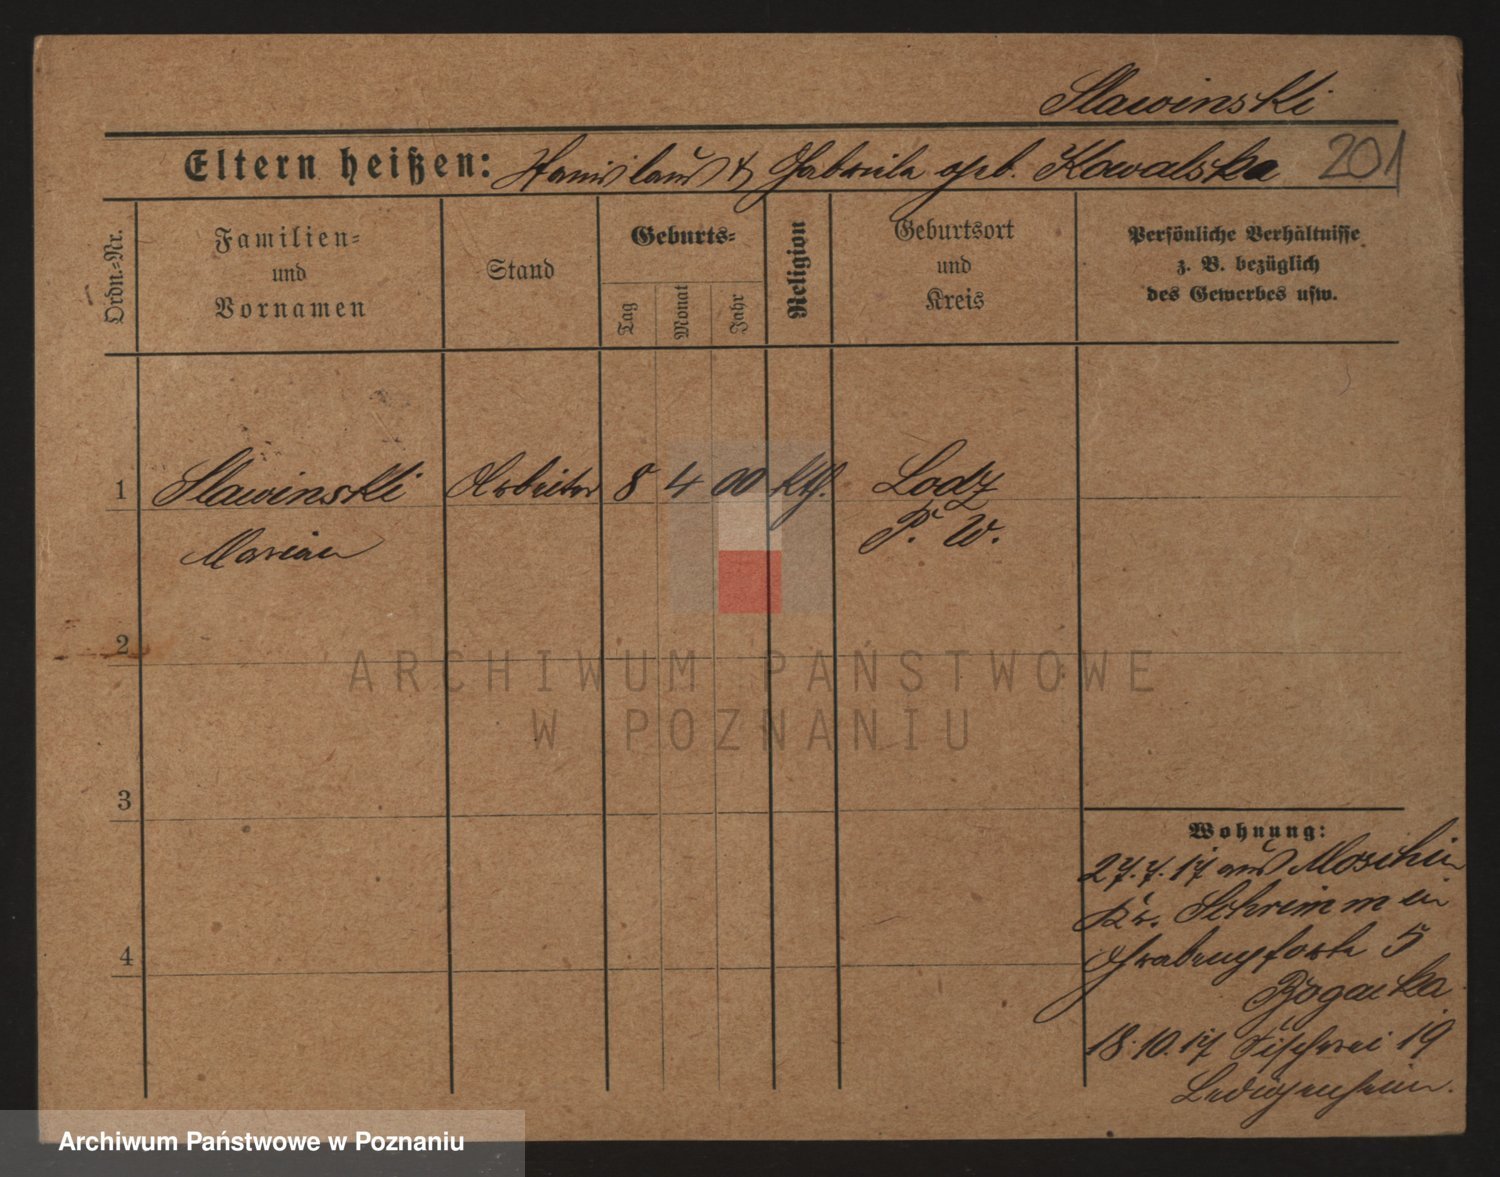 Slawinski
Eltern heißen: Stanislaus & Gabriela geb. Kowalska 201
Ordn.-Nr.
Familien-
und
Vornamen
Stand
Geburts-
Tag
Monat
Jahr
Religion
Geburtsort
und
Kreis
Persönliche Verhältnisse
z. B. bezüglich
des Gewerbes usw.
1 Slawinski Arbeiter 8 4 00 kth. Lodz
Marian P. W.
2
ARCHIWUM PAŃSTWOWE
W POZNANIU
3
Wohnung:
27.7.17 aus Moschin
Kr. Schrimm ein
4
Grabenpforte 5
Bogacka
18.10.17 Fischerei 19
Ledigenheim.
Archiwum Państwowe w Poznaniu